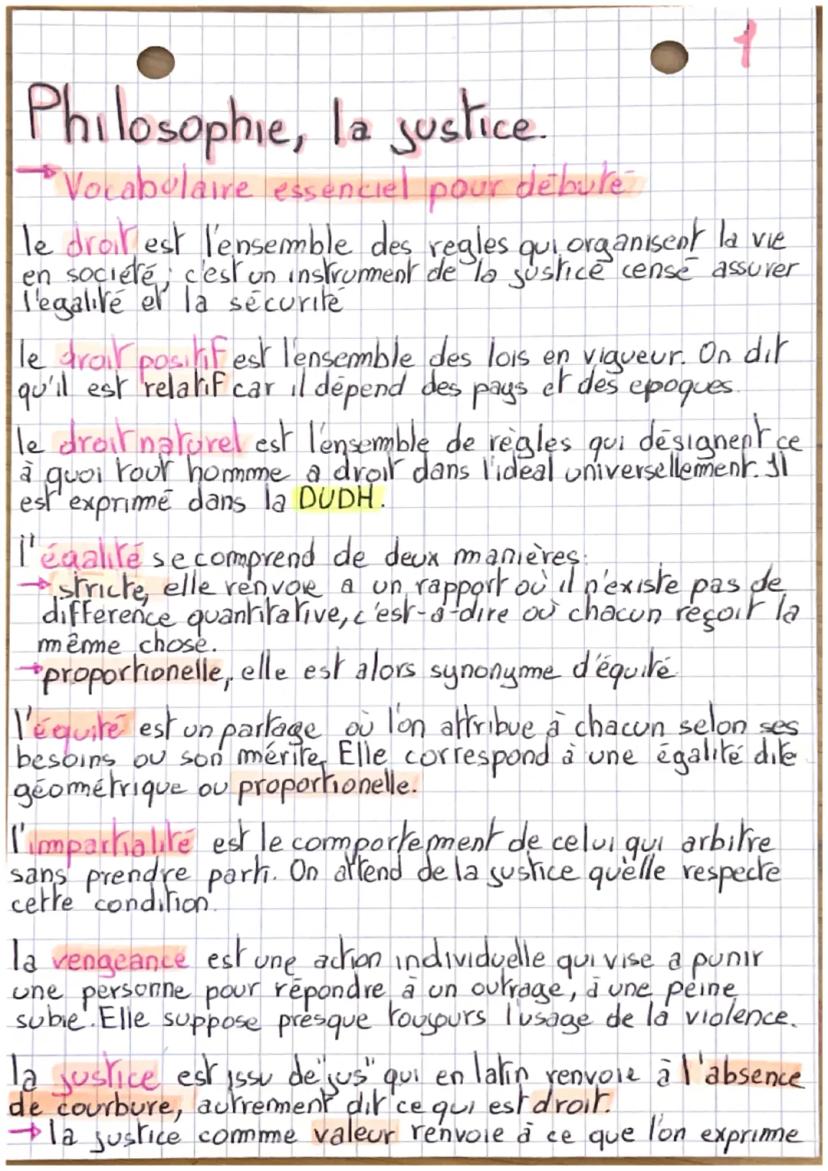 1
Philosophie, la justice.
→ Vocabulaire essenciel pour débuté
le droit est l'ensemble des règles qui organisent la vie
en société, c'est un instrument de la justice censé assurer
l'égalité et la sécurité
le droit positif est l'ensemble des lois en vigueur. On dit
qu'il est relatif car il dépend des pays et des époques.
le droit naturel est l'ensemble de règles qui désignent ce
à quoi tout homme a droit dans l'idéal universellement. Il
est exprimé dans la DUDH.
l'égalité se comprend de deux manières:
→ stricte, elle renvoie a un rapport où il n'existe pas de
différence quantitative, c'est-à-dire où chacun reçoit la
même chose.
→ proportionelle, elle est alors synonyme d'équité
l'équité est un partage où l'on attribue à chacun selon ses
besoins ou son mérite, Elle correspond à une égalité dite
géométrique ou proportionelle.
l'impartialité est le comportement de celui qui arbitre
sans prendre parti. On attend de la justice qu'elle respecte
cette condition.
la vengeance est une action individuelle qui vise a punir
une personne pour répondre à un outrage, à une peine
subie. Elle suppose presque toujours l'usage de la violence.
la justice est issu de "jus" qui en latin renvoie à l'absence
de courbure, autrement dit ce qui est droit.
→ la justice comme valeur renvoie à ce que l'on exprime